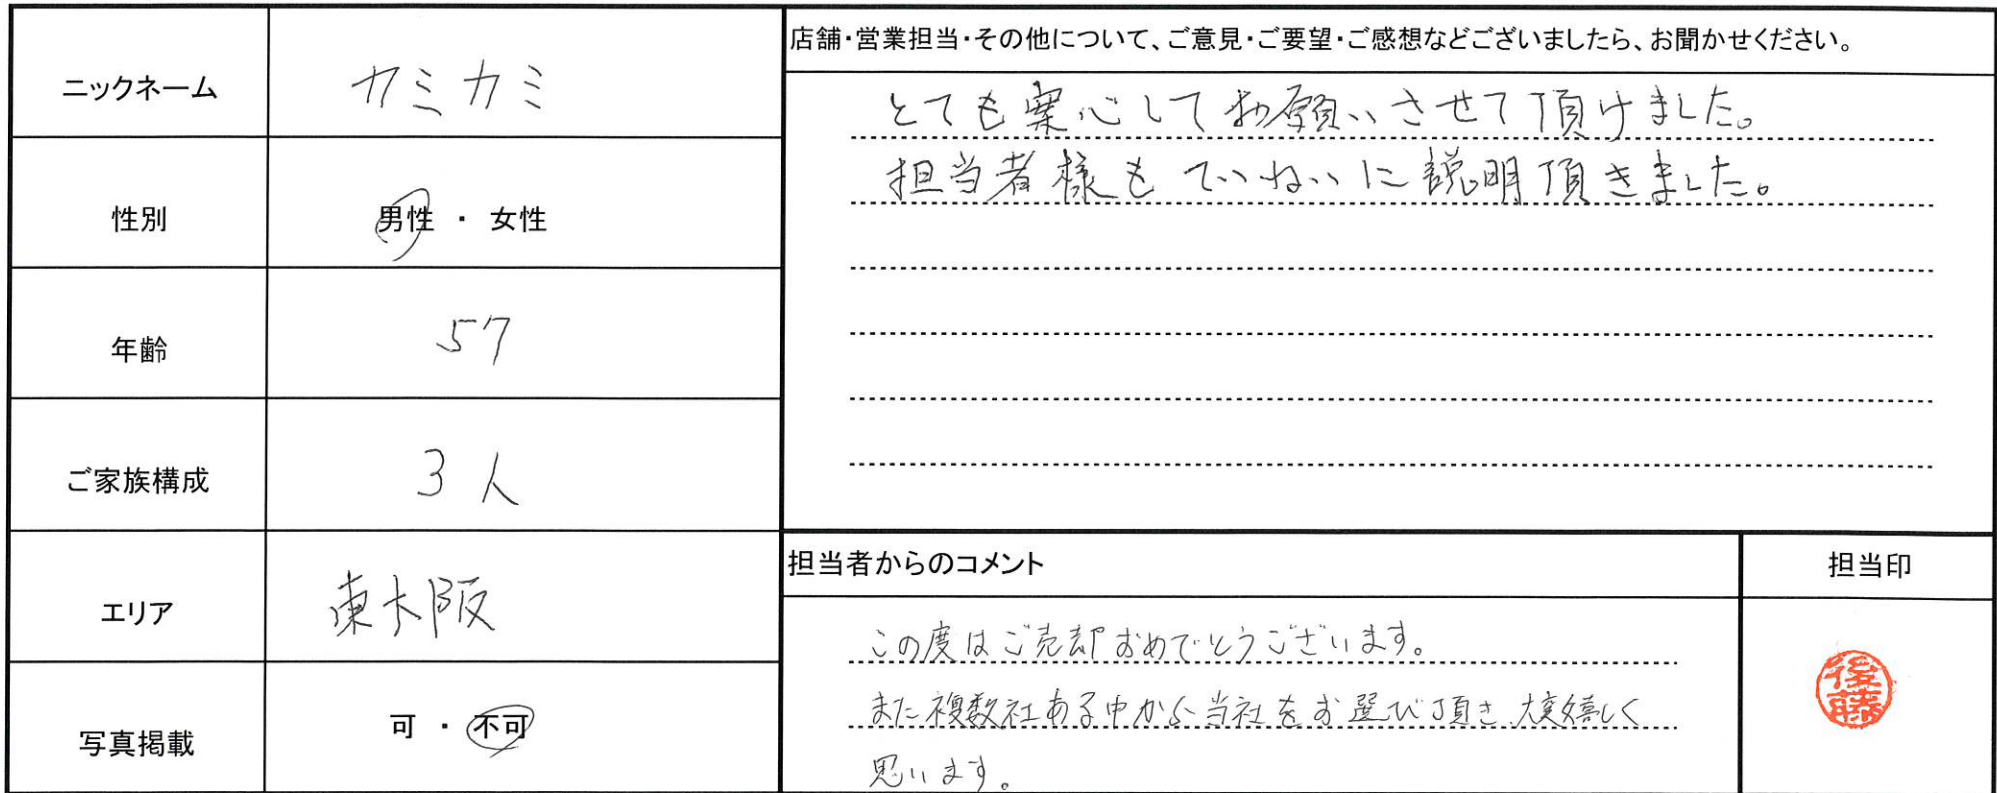 ニックネーム カミカミ
性別 男性 ・ 女性
年齢 57
ご家族構成 3人
エリア 東大阪
写真掲載 可 ・ 不可
店舗・営業担当・その他について、ご意見・ご要望・ご感想などございましたら、お聞かせください。
とても安心してお願いさせて頂けました。
担当者様もていねいに説明頂きました。
担当者からのコメント
この度はご売却おめでとうございます。
また複数社ある中から当社をお選び頂き大変嬉しく
思います。
担当印
後藤